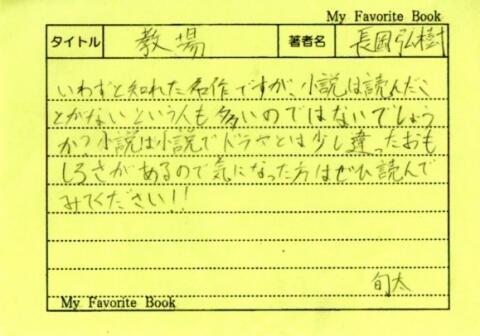 My Favorite Book
タイトル 教場 著者名 長岡弘樹
いわずと知れた名作ですが、小説は読んだこ
とがないという人も多いのではないでしょう
か?小説は小説でドラマとは少し違ったおも
しろさがあるので気になった方はぜひ読んで
みてください!!
旬太
My Favorite Book